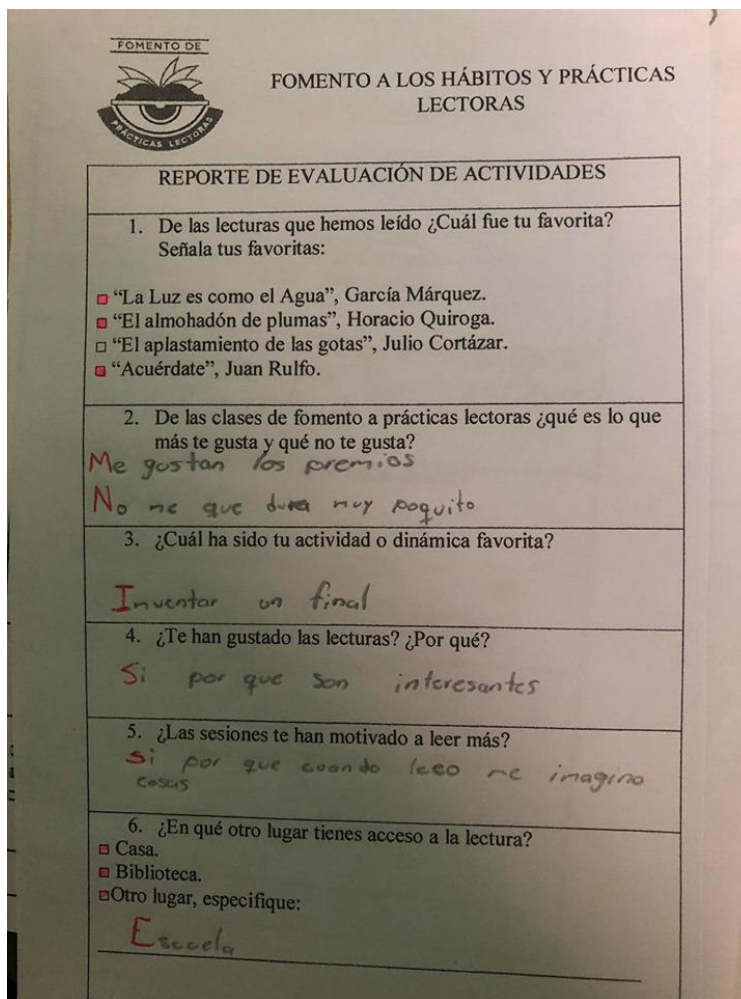 FOMENTO DE
PRÁCTICAS LECTORAS
FOMENTO A LOS HÁBITOS Y PRÁCTICAS
LECTORAS
REPORTE DE EVALUACIÓN DE ACTIVIDADES
1. De las lecturas que hemos leído ¿Cuál fue tu favorita?
Señala tus favoritas:
“La Luz es como el Agua”, García Márquez.
“El almohadón de plumas”, Horacio Quiroga.
“El aplastamiento de las gotas”, Julio Cortázar.
“Acuérdate”, Juan Rulfo.
2. De las clases de fomento a prácticas lectoras ¿qué es lo que
más te gusta y qué no te gusta?
Me gustan los premios
No me que dura muy poquito
3. ¿Cuál ha sido tu actividad o dinámica favorita?
Inventar un final
4. ¿Te han gustado las lecturas? ¿Por qué?
Si por que son interesantes
5. ¿Las sesiones te han motivado a leer más?
Si por que cuando leeo me imagino
cosas
6. ¿En qué otro lugar tienes acceso a la lectura?
Casa.
Biblioteca.
Otro lugar, especifique:
Escuela